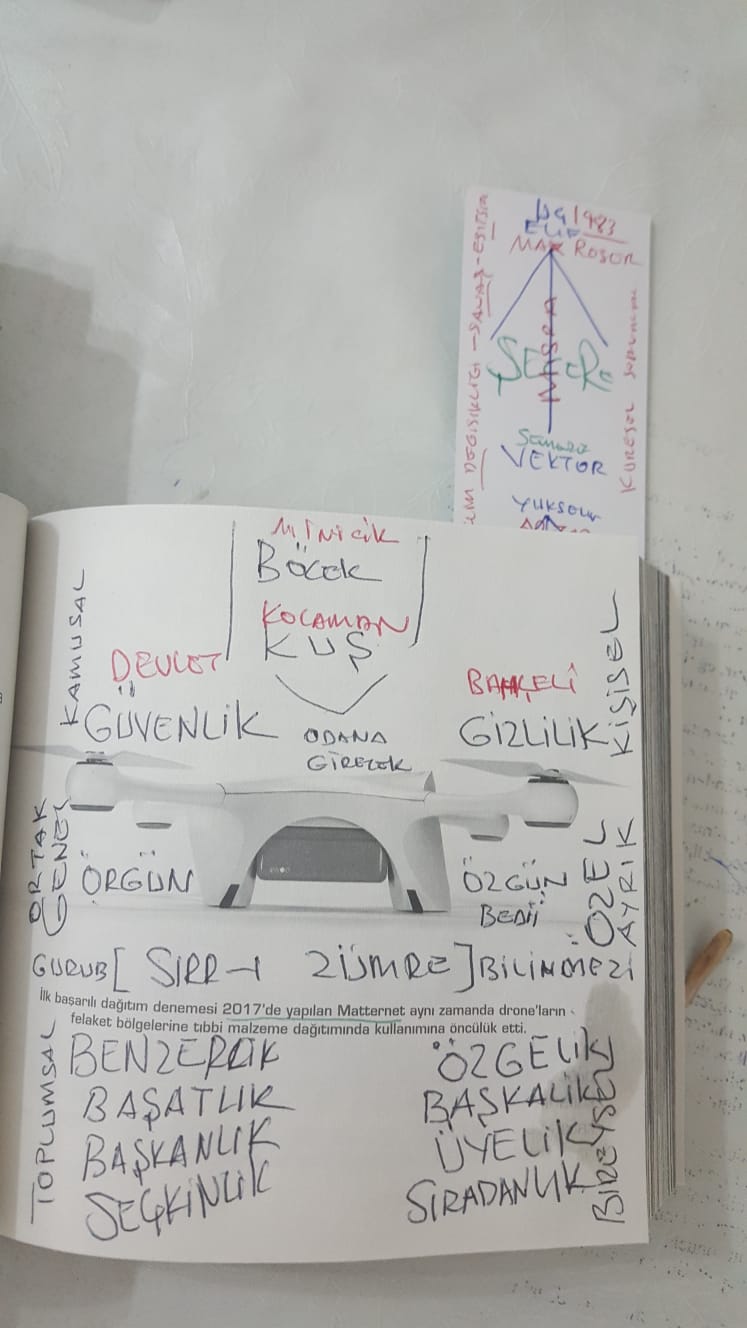 1983
ELİF
MAX ROSER
ŞECERE
MISRA
VEKTOR
DEĞİŞİKLİĞİ - SAVAŞ - EŞİTSİZ
KÜRESEL
MİNİCİK
BÖCEK
KOCAMAN
KUŞ
KAMUSAL
DEVLET
GÜVENLİK
ODANA
GİRECEK
BAHÇELİ
GİZLİLİK
KİŞİSEL
ORTAK
GENEL
ÖRGÜN
ÖZGÜN
BEDİİ
ÖZEL
AYRIK
GURUB [ SIRR-I ZÜMRE ] BİLİNMEZİ
İlk başarılı dağıtım denemesi 2017'de yapılan Matternet aynı zamanda drone'ların
felaket bölgelerine tıbbi malzeme dağıtımında kullanımına öncülük etti.
TOPLUMSAL
BENZERLİK
BAŞATLIK
BAŞKANLIK
SEÇKİNLİK
ÖZGELİK
BAŞKALIK
ÜYELİK
SIRADANLIK
BİREYSEL